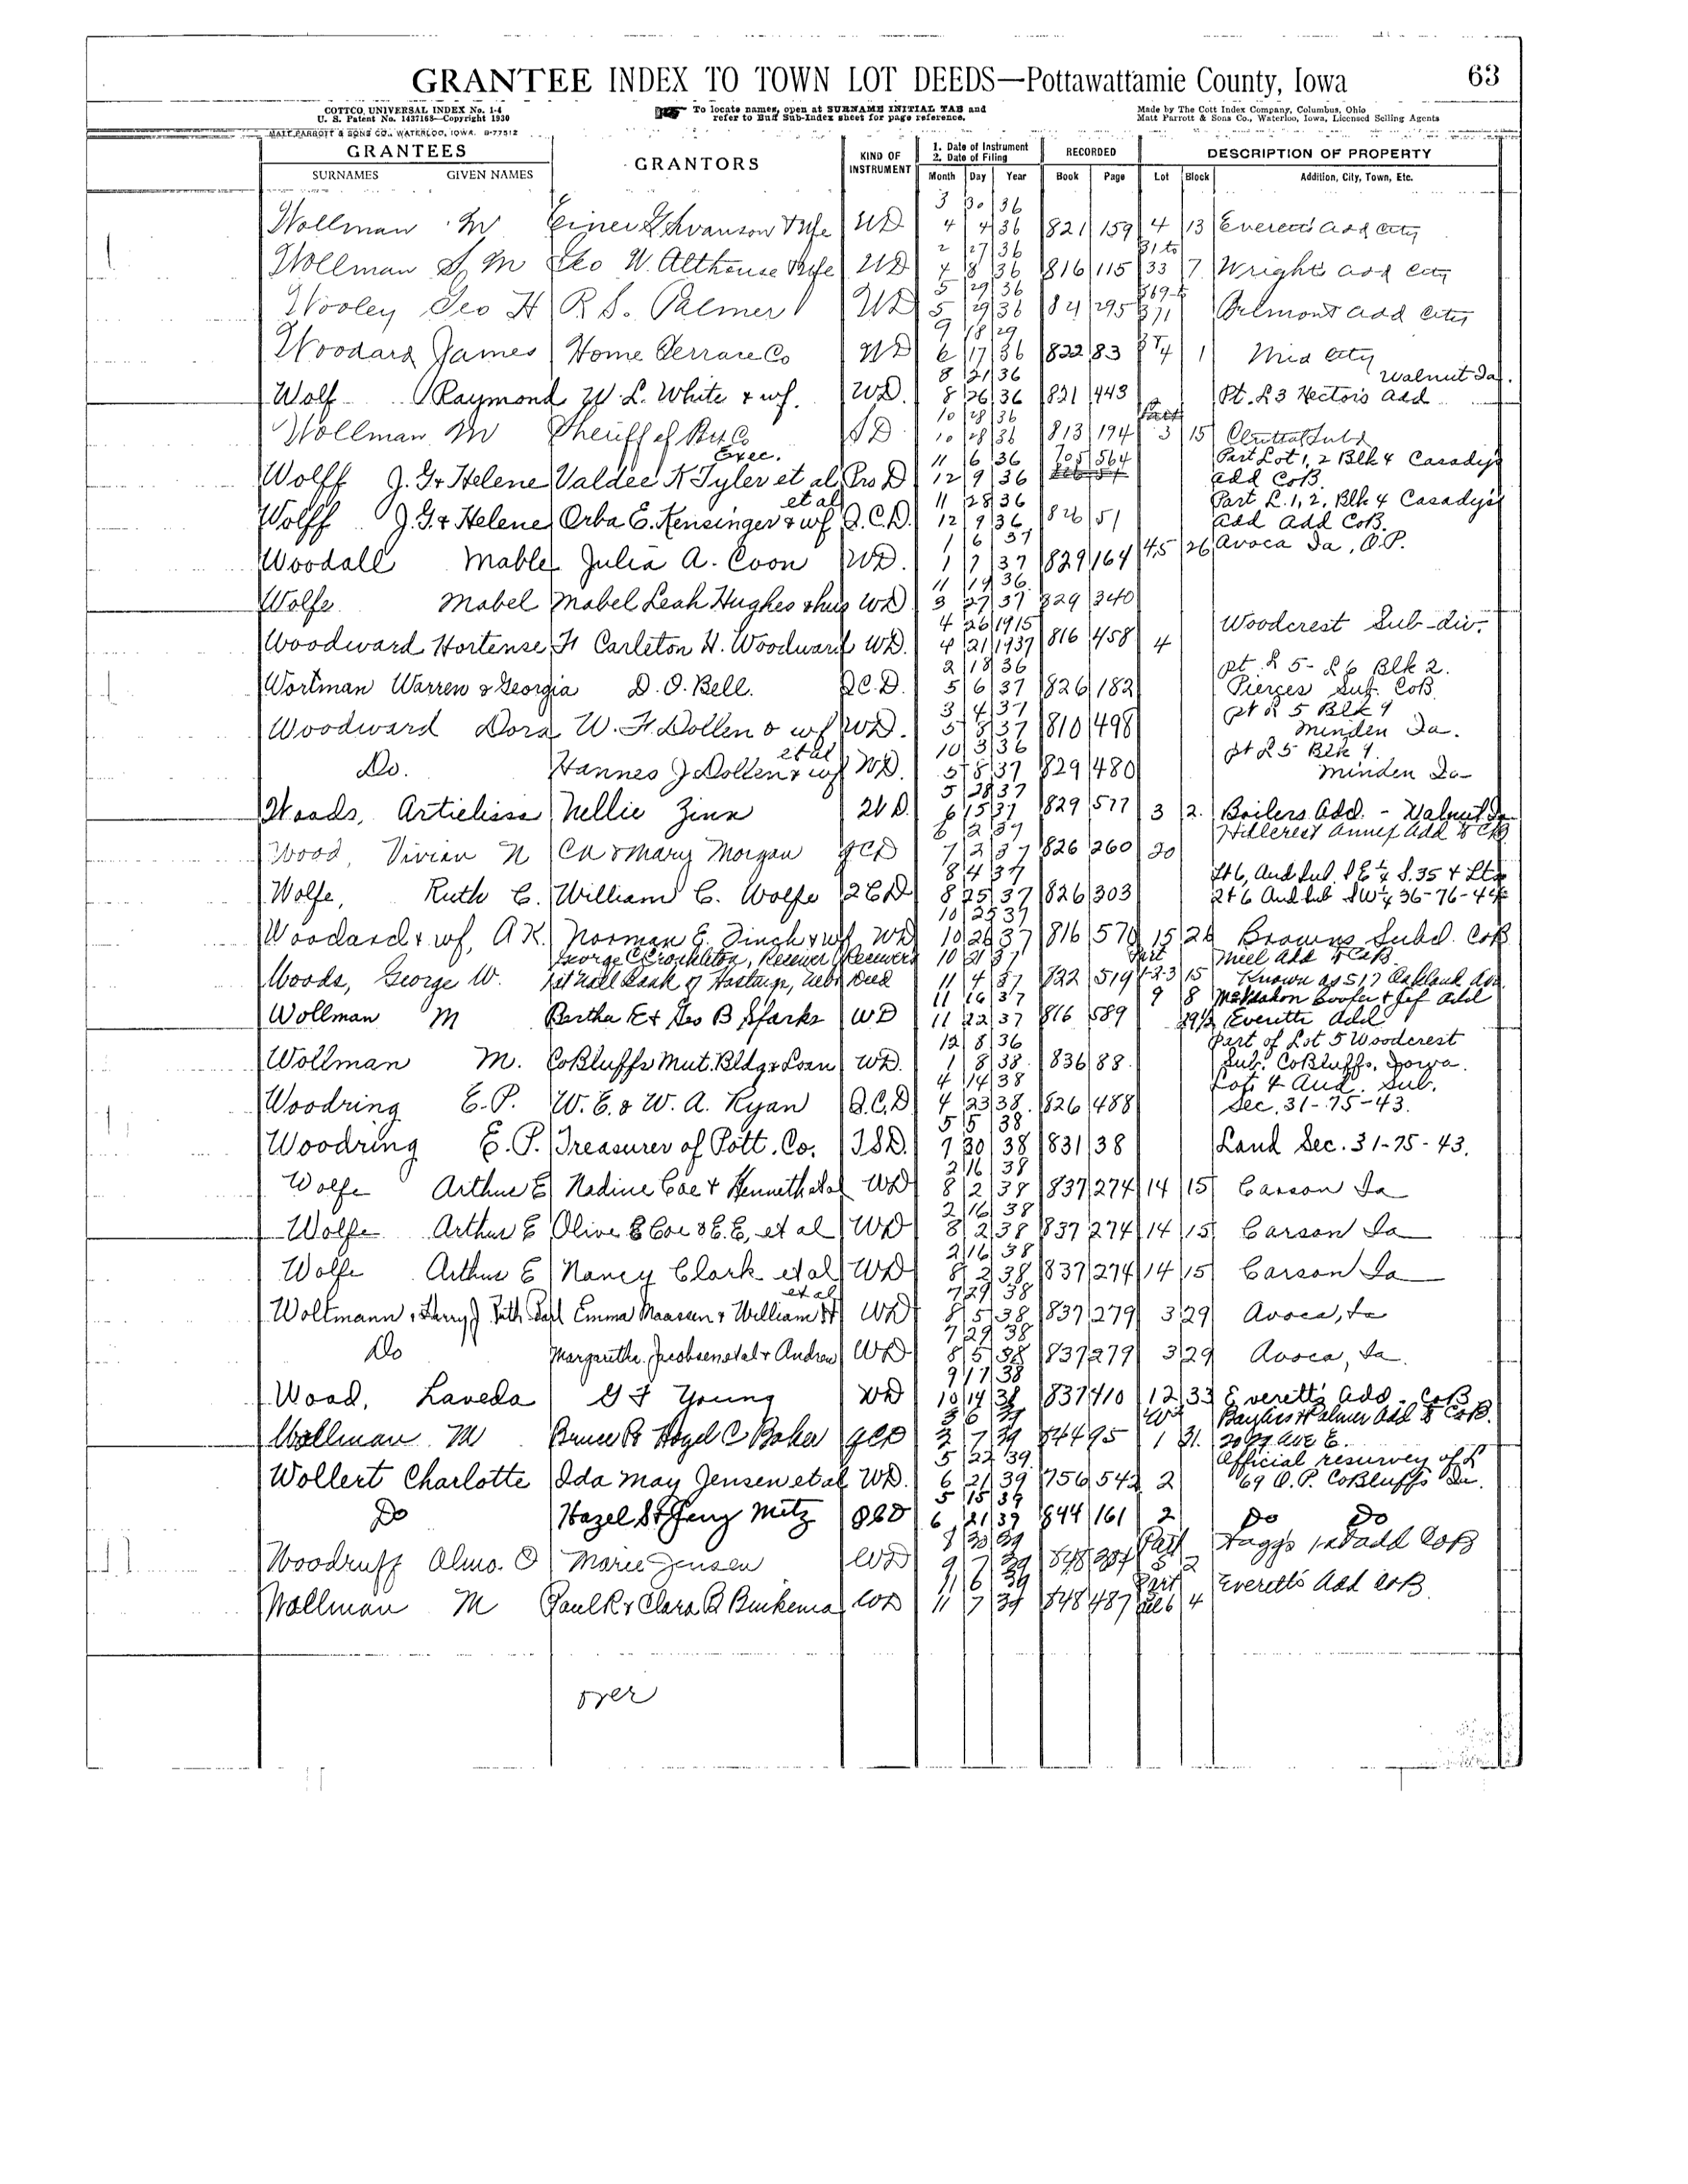 GRANTEE INDEX TO TOWN LOT DEEDS—Pottawattamie County, Iowa 63
COTTCO UNIVERSAL INDEX No. 1-4
U. S. Patent No. 1437168—Copyright 1930
To locate names, open at SURNAME INITIAL TAB and
refer to Buff Sub-Index sheet for page reference.
Made by The Cott Index Company, Columbus, Ohio
Matt Parrott & Sons Co., Waterloo, Iowa, Licensed Selling Agents
MATT PARROTT & SONS CO., WATERLOO, IOWA. B-77512
GRANTEES GRANTORS KIND OF INSTRUMENT 1. Date of Instrument 2. Date of Filing RECORDED DESCRIPTION OF PROPERTY
SURNAMES GIVEN NAMES Month Day Year Book Page Lot Block Addition, City, Town, Etc.
3 30 36
Wollman M Swanson & Wife WD 4 4 36 821 159 4 13 Everett's add City
2 27 36 31 to
Wollman S M Geo W. Althouse Wife WD 4 8 36 816 115 33 7 Wright's add City
5 29 36 369 to
Wooley Geo H R S. Palmer WD 5 29 36 84 295 371 Belmont add City
9 18 29
Woodard James Home Terrace Co WD 6 17 36 822 83 4 1 Mid City
8 21 36 Walnut Ia.
Wolf Raymond W. L. White & wf. WD. 8 26 36 821 443 Pt. L3 Hector's Add
10 28 36 Part
Wollman M Sheriff of Co SD 10 28 36 813 194 3 15 Central Subd
Exec. 11 6 36 705 564 Part Lot 1, 2 Blk 4 Casady's
Wolff J. G. & Helene Valdee K Tyler et al Pro D 12 9 36 add CoB.
et al 11 28 36 Part L. 1, 2, Blk 4 Casady's
Wolff J. G. & Helene Orba E. Kensinger & wf Q.C.D. 12 9 36 826 51 Add Add CoB.
1 6 37
Woodall Mable Julia A. Coon WD. 1 7 37 829 164 45 26 Avoca Ia, O.P.
11 19 36
Wolfe Mabel Mabel Leah Hughes & hus WD 3 27 37 829 340
4 26 1915 Woodcrest Sub-div.
Woodward Hortense H Carleton H. Woodward WD. 4 21 1937 816 458 4
2 18 36 pt L 5- L 6 Blk 2.
Wortman Warren & Georgia D. O. Bell. Q.C.D. 5 6 37 826 182 Pierces Sub. CoB
3 4 37 pt L 5 Blk 9
Woodward Dora W. H. Dollen & wf WD. 5 8 37 810 498 Minden Ia.
et al 10 3 36 pt L 5 Blk 9
Do. Hannes J Dollen & wf WD. 5 8 37 829 480 Minden Ia
5 28 37
Woods, Artielissa Nellie Zinn WD. 6 15 37 829 577 3 2. Boilers Add. - Walnut Ia
6 2 37 Hillcrest Annex Add to CB
Wood, Vivian N CA & Mary Morgan QCD 7 2 37 826 260 20
8 4 37
Wolfe, Ruth C. William C. Wolfe QCD 8 25 37 826 303 Lt 6 Aud Sub SW¼ 36-76-44
10 25 37
Woodard & wf, A K. Norman E. Finch & wf WD 10 26 37 816 570 15 26 Browns Subd. CoB
10 21 37 Part
Woods, George W. 1st Natl Bank of Hastings, Nebr Deed 11 4 37 822 519 1-2-3 15 Known as 517 Oakland Ave.
11 16 37 9 8
Wollman M Bertha E & Geo B Sparks WD 11 22 37 816 589 Everetts Add
12 8 36 Part of Lot 5 Woodcrest
Wollman M. CoBluffs Mut. Bldg & Loan WD. 1 8 38. 836 88. Sub. CoBluffs, Iowa.
4 14 38 Lot 4 Aud. Sub.
Woodring E. P. W. E. & W. A. Ryan Q.C.D 4 23 38. 826 488 Sec. 31-75-43.
5 5 38
Woodring E. P. Treasurer of Pott. Co. T.S.D. 7 30 38 831 38 Land Sec. 31-75-43.
2 16 38
Wolfe Arthur E Nadine Coe & Kenneth et al WD 8 2 38 837 274 14 15 Carson Ia
2 16 38
Wolfe Arthur E Olive E Coe & E. E, et al WD 8 2 38 837 274 14 15 Carson Ia
2 16 38
Wolfe Arthur E Nancy Clark et al WD 8 2 38 837 274 14 15 Carson Ia
et al 7 29 38
Woltmann, Harry J Emma Maassen & William H WD 8 5 38 837 279 3 29 Avoca, Ia
7 29 38
Do Margaretha Jacobsen et al & Andrew WD 8 5 38 837 279 3 29 Avoca, Ia.
9 17 38
Wood, Laveda G F Young WD 10 14 38 837 410 12 33 Everett's Add. CoB
3 6 39 Bayliss & Palmer Add to CoB.
Wollman M Bruce R Hazel C Baker QCD 3 7 39 844 95 1 31.
5 22 39 Official resurvey of L
Wollert Charlotte Ida May Jensen et al WD. 6 21 39 756 542 2 69 O. P. CoBluffs Ia.
5 15 39
Do Hazel Metz QCD 6 21 39 844 161 2 Do Do
8 30 39 Part Faggs 1st add CoB
Woodruff Alma. O Marie Jensen WD 9 7 39 2
11 6 39 Part Everett's Add CoB
Wollman M Paul R & Clara B WD 11 7 39 848 487 4
over